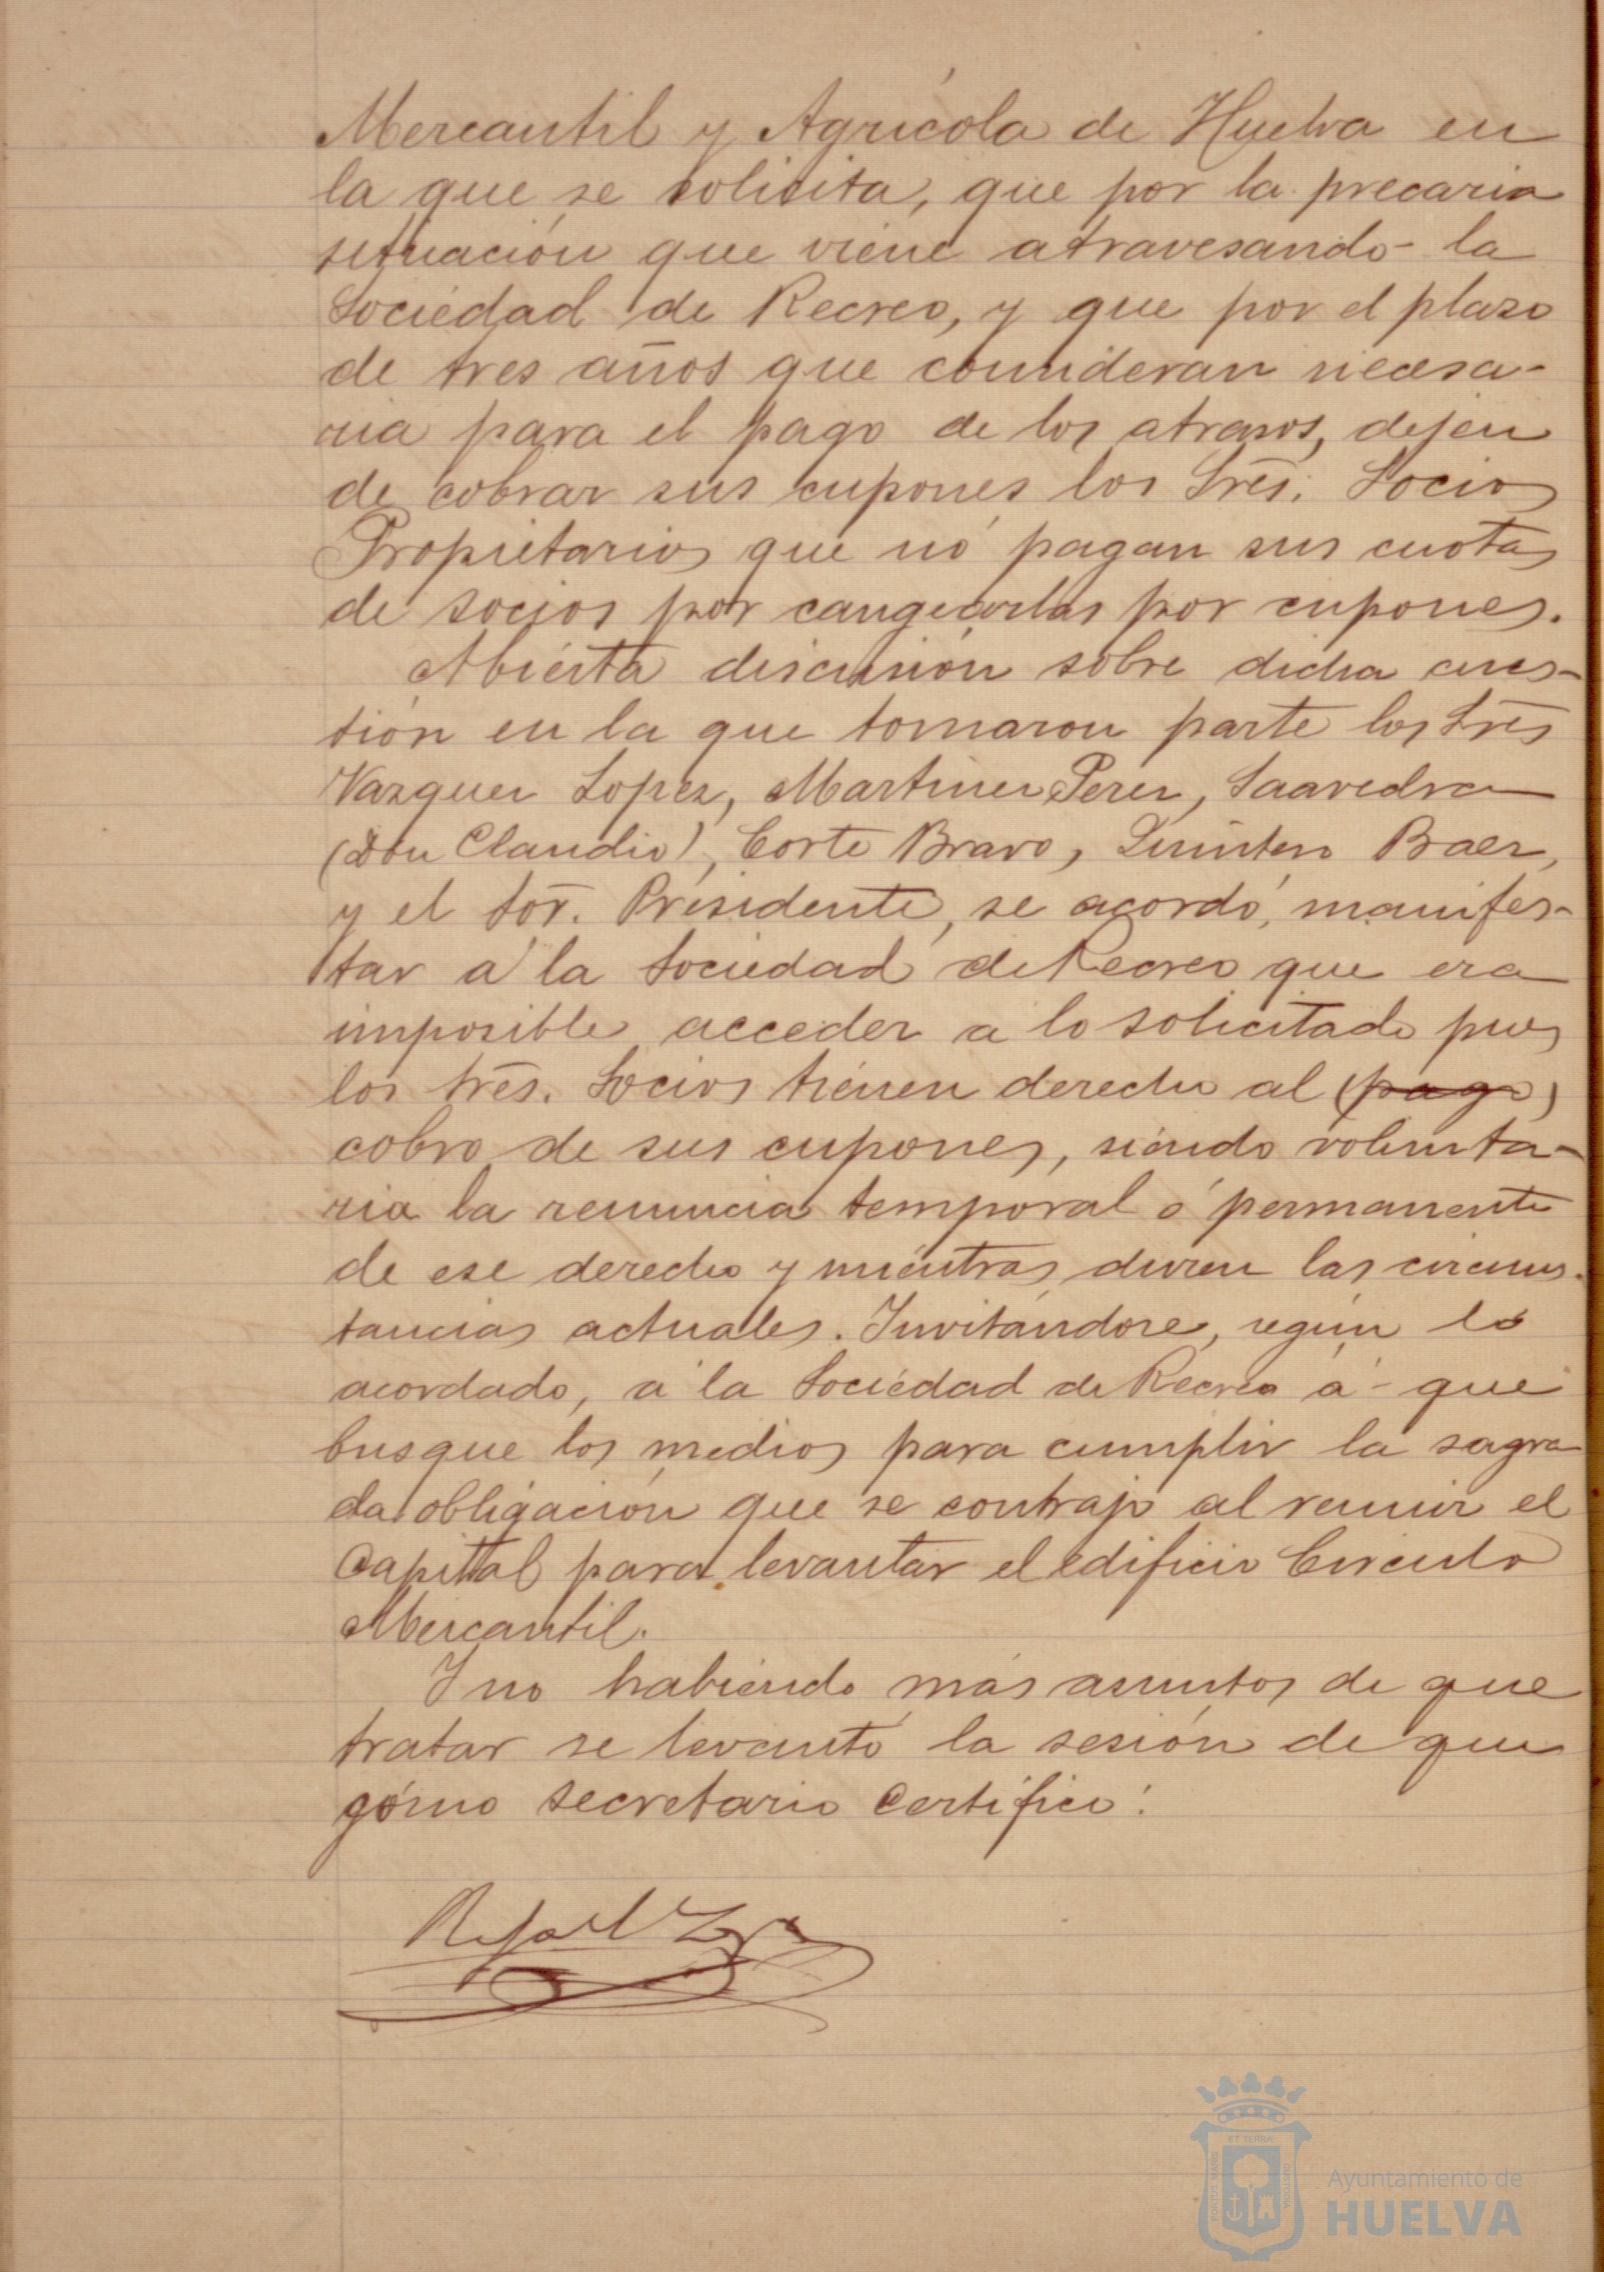 Mercantil y Agrícola de Huelva en
la que se solicita, que por la precaria
situación que viene atravesando la
Sociedad de Recreo, y que por el plazo
de tres años que consideran necesa-
ria para el pago de los atrasos, dejen
de cobrar sus cupones los Srēs. Socios
Propietarios que nó pagan sus cuotas
de socios por cangearlas por cupones.
Abierta discusión sobre dicha cues-
tión en la que tomaron parte los Srēs
Vazquez Lopez, Martinez Perez, Saavedra
(Don Claudio), Corte Bravo, Quintero Baez,
y el Sōr. Presidente, se acordó, manifes-
tar á la Sociedad de Recreo que era
imposible acceder a lo solicitado pues
los Srēs. Socios tienen derecho al (pago)
cobro de sus cupones, siendo volunta-
ria la renuncia temporal ó permanente
de ese derecho y mientras duren las circuns-
tancias actuales. Invitándose, según lo
acordado, á la Sociedad de Recreo á que
busque los medios para cumplir la sagra-
da obligación que se contrajo al reunir el
Capital para levantar el edificio Circulo
Mercantil.
Y no habiendo más asuntos de que
tratar se levantó la sesión de que
cómo secretario certifico.
Rafael
PORTUS MARIS
ET TERRAE
CUSTODIA
Ayuntamiento de
HUELVA